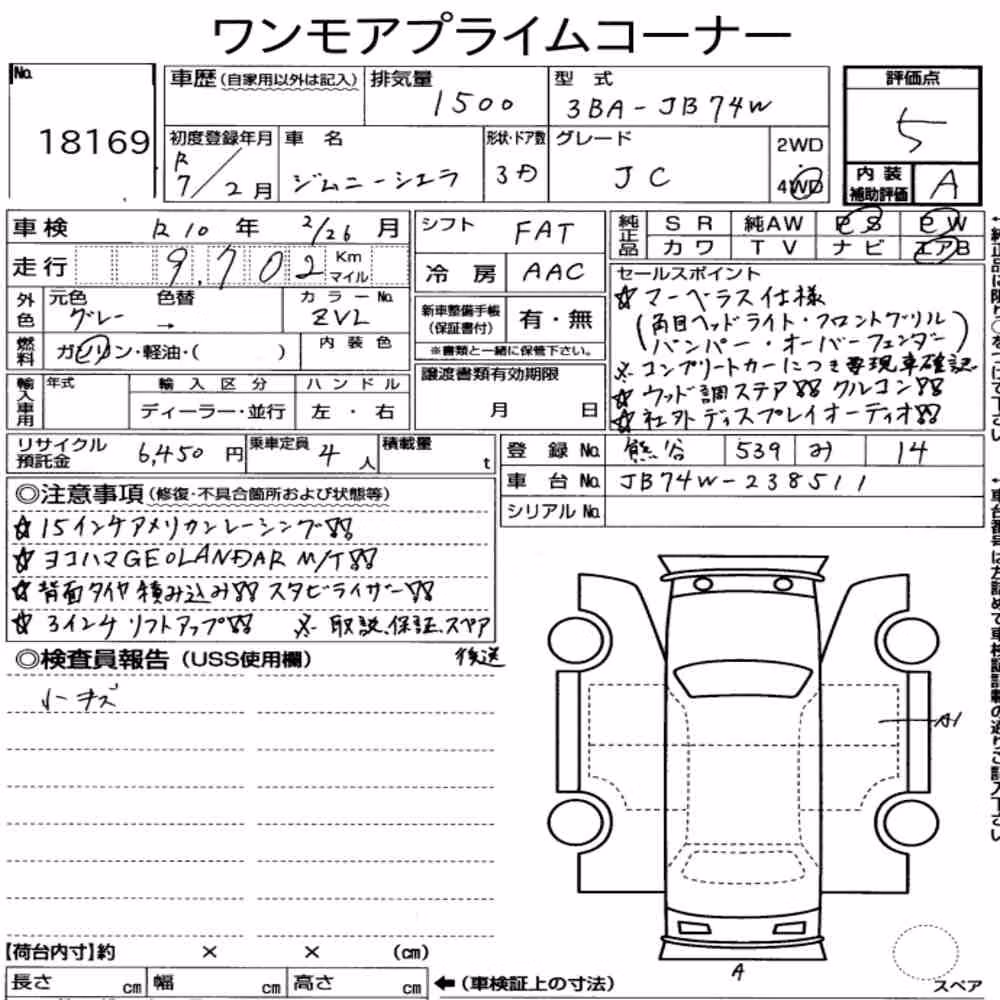 ワンモアプライムコーナー
No. 18169
車歴(自家用以外は記入) 排気量 1500 型式 3BA-JB74W
評価点 5
初度登録年月 R 7/2月 車名 ジムニーシエラ 形状・ドア数 3D グレード JC 2WD 4WD
内装補助評価 A
車検 R10年 2/26月
走行 9,702 Km マイル
シフト FAT
冷房 AAC
純正品 SR 純AW PS PW
カワ TV ナビ エアB
外色 元色 グレー 色替 → カラーNo. ZVL
燃料 ガソリン・軽油・( ) 内装色
新車整備手帳(保証書付) 有・無
※書類と一緒に保管下さい。
輸入車用 年式 輸入区分 ハンドル
ディーラー・並行 左・右
譲渡書類有効期限
月 日
セールスポイント
☆マーベラス仕様
(角目ヘッドライト・フロントグリル)
(バンパー・オーバーフェンダー)
※コンプリートカーにつき要現車確認
☆ウッド調ステア!! クルコン!!
☆社外ディスプレイオーディオ!!
リサイクル預託金 6,450円 乗車定員 4人 積載量 t
登録No. 熊谷 539 み 14
車台No. JB74W-238511
シリアルNo.
◎注意事項(修復・不具合箇所および状態等)
☆15インチアメリカンレーシング!!
☆ヨコハマGEOLANDAR M/T!!
☆背面タイヤ積み込み!! スタビライザー!!
☆3インチ リフトアップ!! ※取説、保証、スペア
後送
◎検査員報告(USS使用欄)
小キズ
A1
A
【荷台内寸】約 × × (cm)
長さ cm 幅 cm 高さ cm ←(車検証上の寸法)
スペア